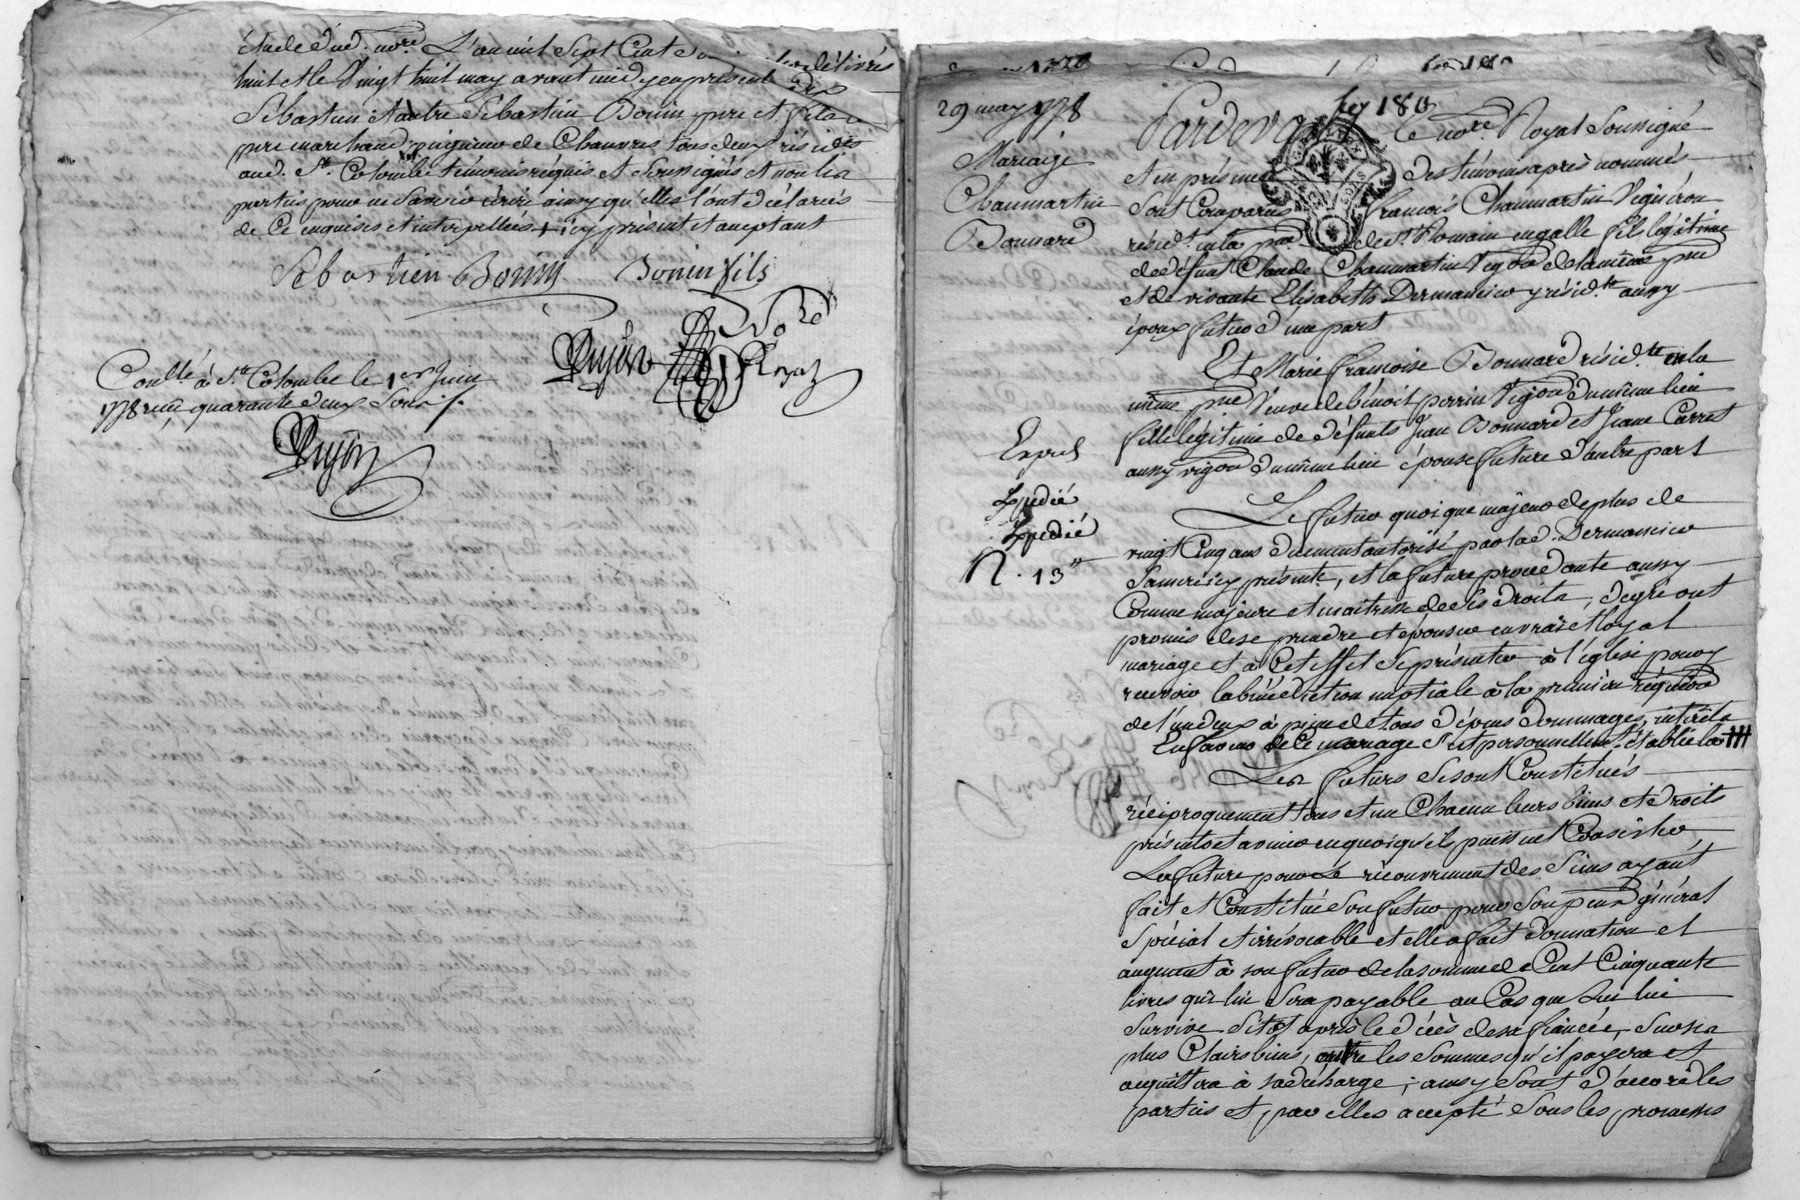 étude dud. nore. L'an mil Sept Cent
huit et le Vingt huit may avant midy en présence
Sébastien et autre Sébastien Bonin père et fils le
père marchand peigneur de Chanvres tous deux résidts
aud. Ste Colombe témoins réquis et Soussignés et non les
parties pour ne Savoir écrire ainsy qu'elles l'ont déclarés
de Ce enquises et interpellées + icy présent et acceptant
Sébastien Bonin Bonin fils
Dujon Nore Royal
Conllé à Ste Colombe le 1er Juin
1778 reçu quarante deux Sous
Dujon
29 may 1778
Mariage
Chaumartin
Bonnard
Expiés
Expédié
Expédié
N. 13
fey 180
Pardevant le nore Royal Soussigné
et en présence des témoins après nommés
Sont Comparus François Chaumartin Vigneron
résidt. en la psse de St Romain en galle fils légitime
de défunt Claude Chaumartin Vigon de la même psse
et de vivante Elisabeth Dermancier y résidte aussy
époux futur d'une part
Et Marie françoise Bonnard résidte en la
même psse Veuve de bénoit perrin Vigon du même lieu
fille légitime de défunts Jean Bonnard et Jeane Carret
aussy vigon du même lieu épouse future d'autre part
Le futur quoique majeur de plus de
vingt Cinq ans duement autorisé par lad. Dermancier
Sa mère icy présente, et la future procédante aussy
Comme majeure et maitresse de Ses droits, de gré ont
promis de se prendre et épouser en vrai et loyal
mariage et à Cet effet Se présenter à l'église pour y
recevoir la bénédiction nuptiale à la première réquison
de l'un deux à peine de tous dépens dommages, intérêts
En faveur de Ce mariage S'est personnellement établie la
Les futurs Se sont Constitués
réciproquement tous et un Chacun leurs biens et droits
présents et avenir en quoi qu'ils puissent Consister
La future pour Le récouvrement des Siens ayant
fait et Constitué Son futur pour Son pcur général
Spécial et irrévocable et elle a fait donnation et
augment à son futur de la somme de Cent Cinquante
livres qui lui Sera payable au Cas que lui lui
Survive Sitôt après le décès de sa fiancée, Sur ses
plus Clairs biens, outre les Sommes qu'il payera et
acquittera à sa décharge ; ainsy Sont d'accord les
parties et, par elles accepté Sous les, promesses